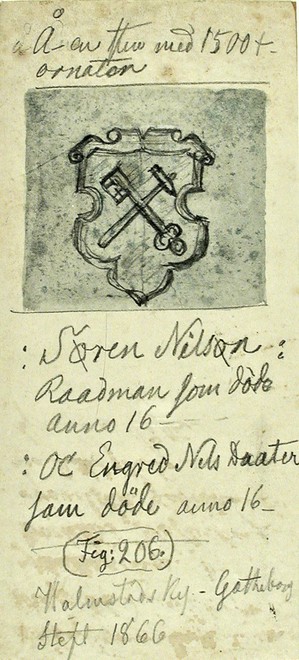 Å
Å- en Sten med 1500 t.
ornater
: Søren Nilsøn :
Raadman som döde
anno 16—
: OC Engred Nils Daater
som döde anno 16—
(Fig: 206.)
Halmstads Ky - Götheborg
Sept 1866